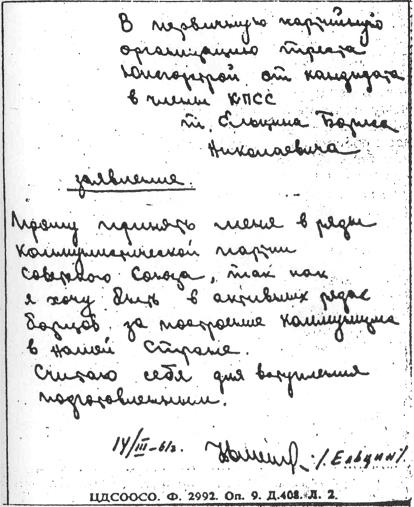 В первичную партийную
организацию треста
Южгорстрой от кандидата
в члены КПСС
т. Ельцина Бориса
Николаевича
заявление.
Прошу принять меня в ряды
Коммунистической партии
Советского Союза, так как
я хочу быть в активных рядах
борцов за построение коммунизма
в нашей стране.
Считаю себя для вступления
подготовленным.
14/III-61г. /Ельцин/.
ЦДООСО. Ф. 2992. Оп. 9. Д.408. Л. 2.